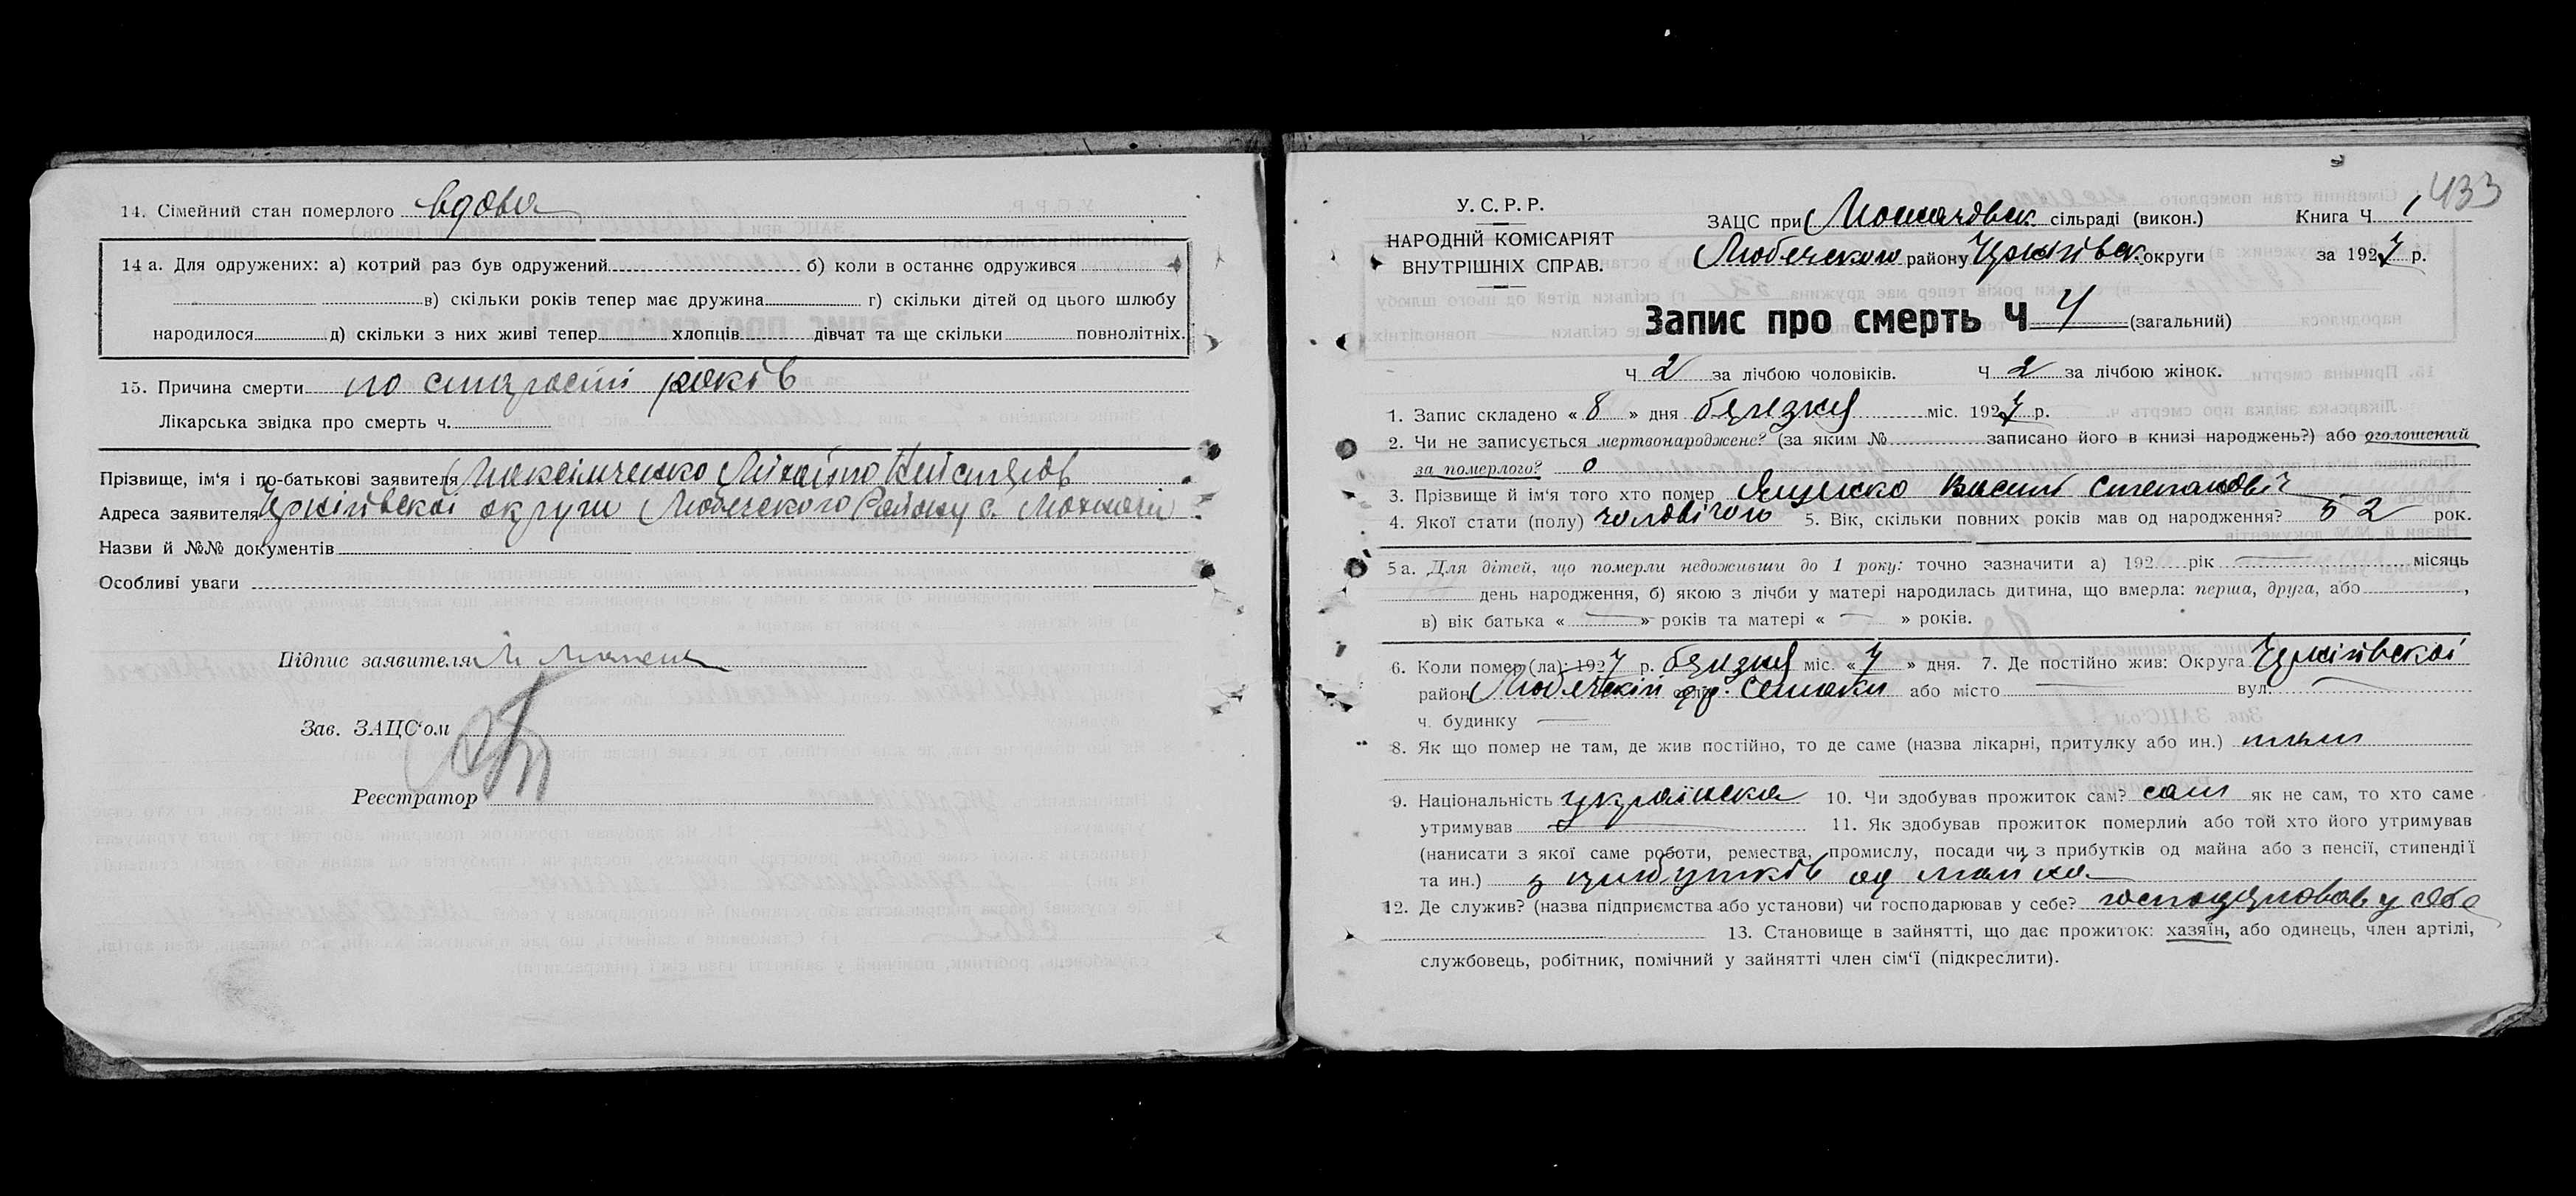 14. Сімейний стан померлого вдова
14 а. Для одружених: а) котрий раз був одружений б) коли в останнє одружився
в) скільки років тепер має дружина г) скільки дітей од цього шлюбу
народилося д) скільки з них живі тепер хлопців дівчат та ще скільки повнолітніх.
15. Причина смерти по старості років
Лікарська звідка про смерть ч.
Прізвище, ім'я і по-батькові заявителя Максімченко Міхайло
Адреса заявителя Чернігівскої округи Любечского Району с. Мохначі
Назви й №№ документів
Особливі уваги
Підпис заявителя М
Зав. ЗАЦС'ом
Реєстратор
433
У. С. Р. Р.
НАРОДНІЙ КОМІСАРІЯТ
ВНУТРІШНІХ СПРАВ.
ЗАЦС при сільраді (викон.) Книга Ч. 1
Любечского району Чернігівск. округи за 1927 р.
Запис про смерть Ч 4 (загальний)
Ч 2 за лічбою чоловіків. Ч 2 за лічбою жінок.
1. Запис складено « 8 » дня березня міс. 1927 р.
2. Чи не записується мертвонароджене? (за яким № записано його в книзі народжень?) або оголошений
за померлого? о
3. Прізвище й ім'я того хто помер Ященко Василь Степановіч
4. Якої стати (полу) чоловічого 5. Вік, скільки повних років мав од народження? 52 рок.
5 а. Для дітей, що померли недоживши до 1 року: точно зазначити а) 192 рік місяць
день народження, б) якою з лічби у матері народилась дитина, що вмерла: перша, друга, або ,
в) вік батька « — » років та матері « — » років.
6. Коли помер (ла): 1927 р. березня міс. «7» дня. 7. Де постійно жив: Округа Чернігівскої
район Любечскій або місто — вул.
ч. будинку —
8. Як що помер не там, де жив постійно, то де саме (назва лікарні, притулку або ин.) там
9. Національність українска 10. Чи здобував прожиток сам? сам як не сам, то хто саме
утримував — 11. Як здобував прожиток померлий або той хто його утримував
(написати з якої саме роботи, ремества, промислу, посади чи з прибутків од майна або з пенсії, стипендії
та ин.) з прибутків од майна
12. Де служив? (назва підприємства або установи) чи господарював у себе? господарював у себе
13. Становище в зайнятті, що дає прожиток: хазяїн, або одинець, член артілі,
службовець, робітник, помічний у зайнятті член сім'ї (підкреслити).